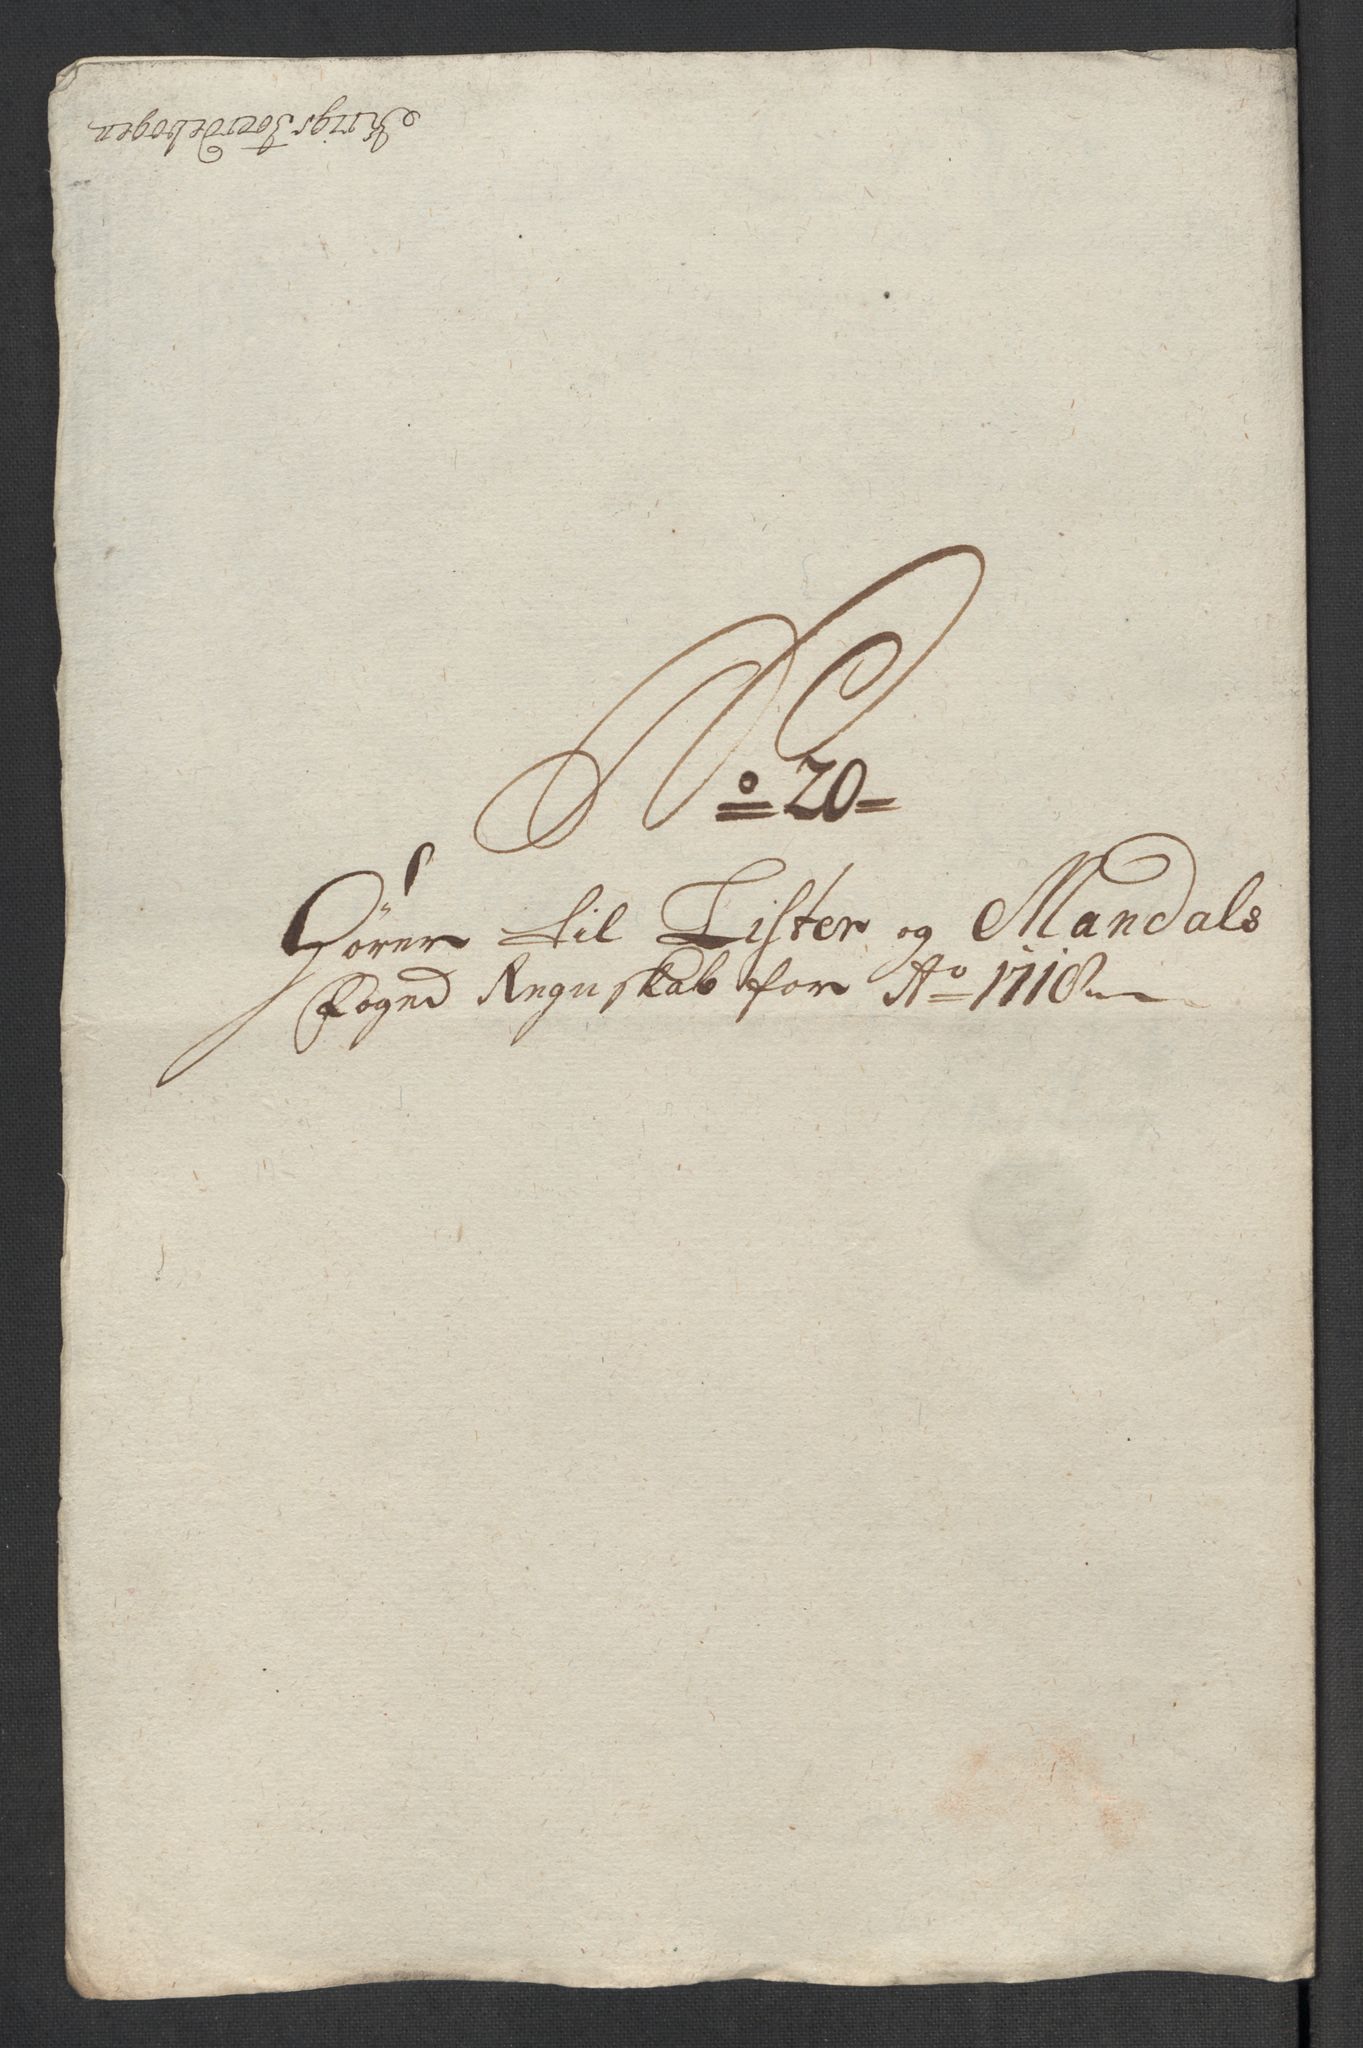 Krigs Jordebogen
No 20
Hörer til Lister og Mandals
Foged Regnskab for Ao 1718